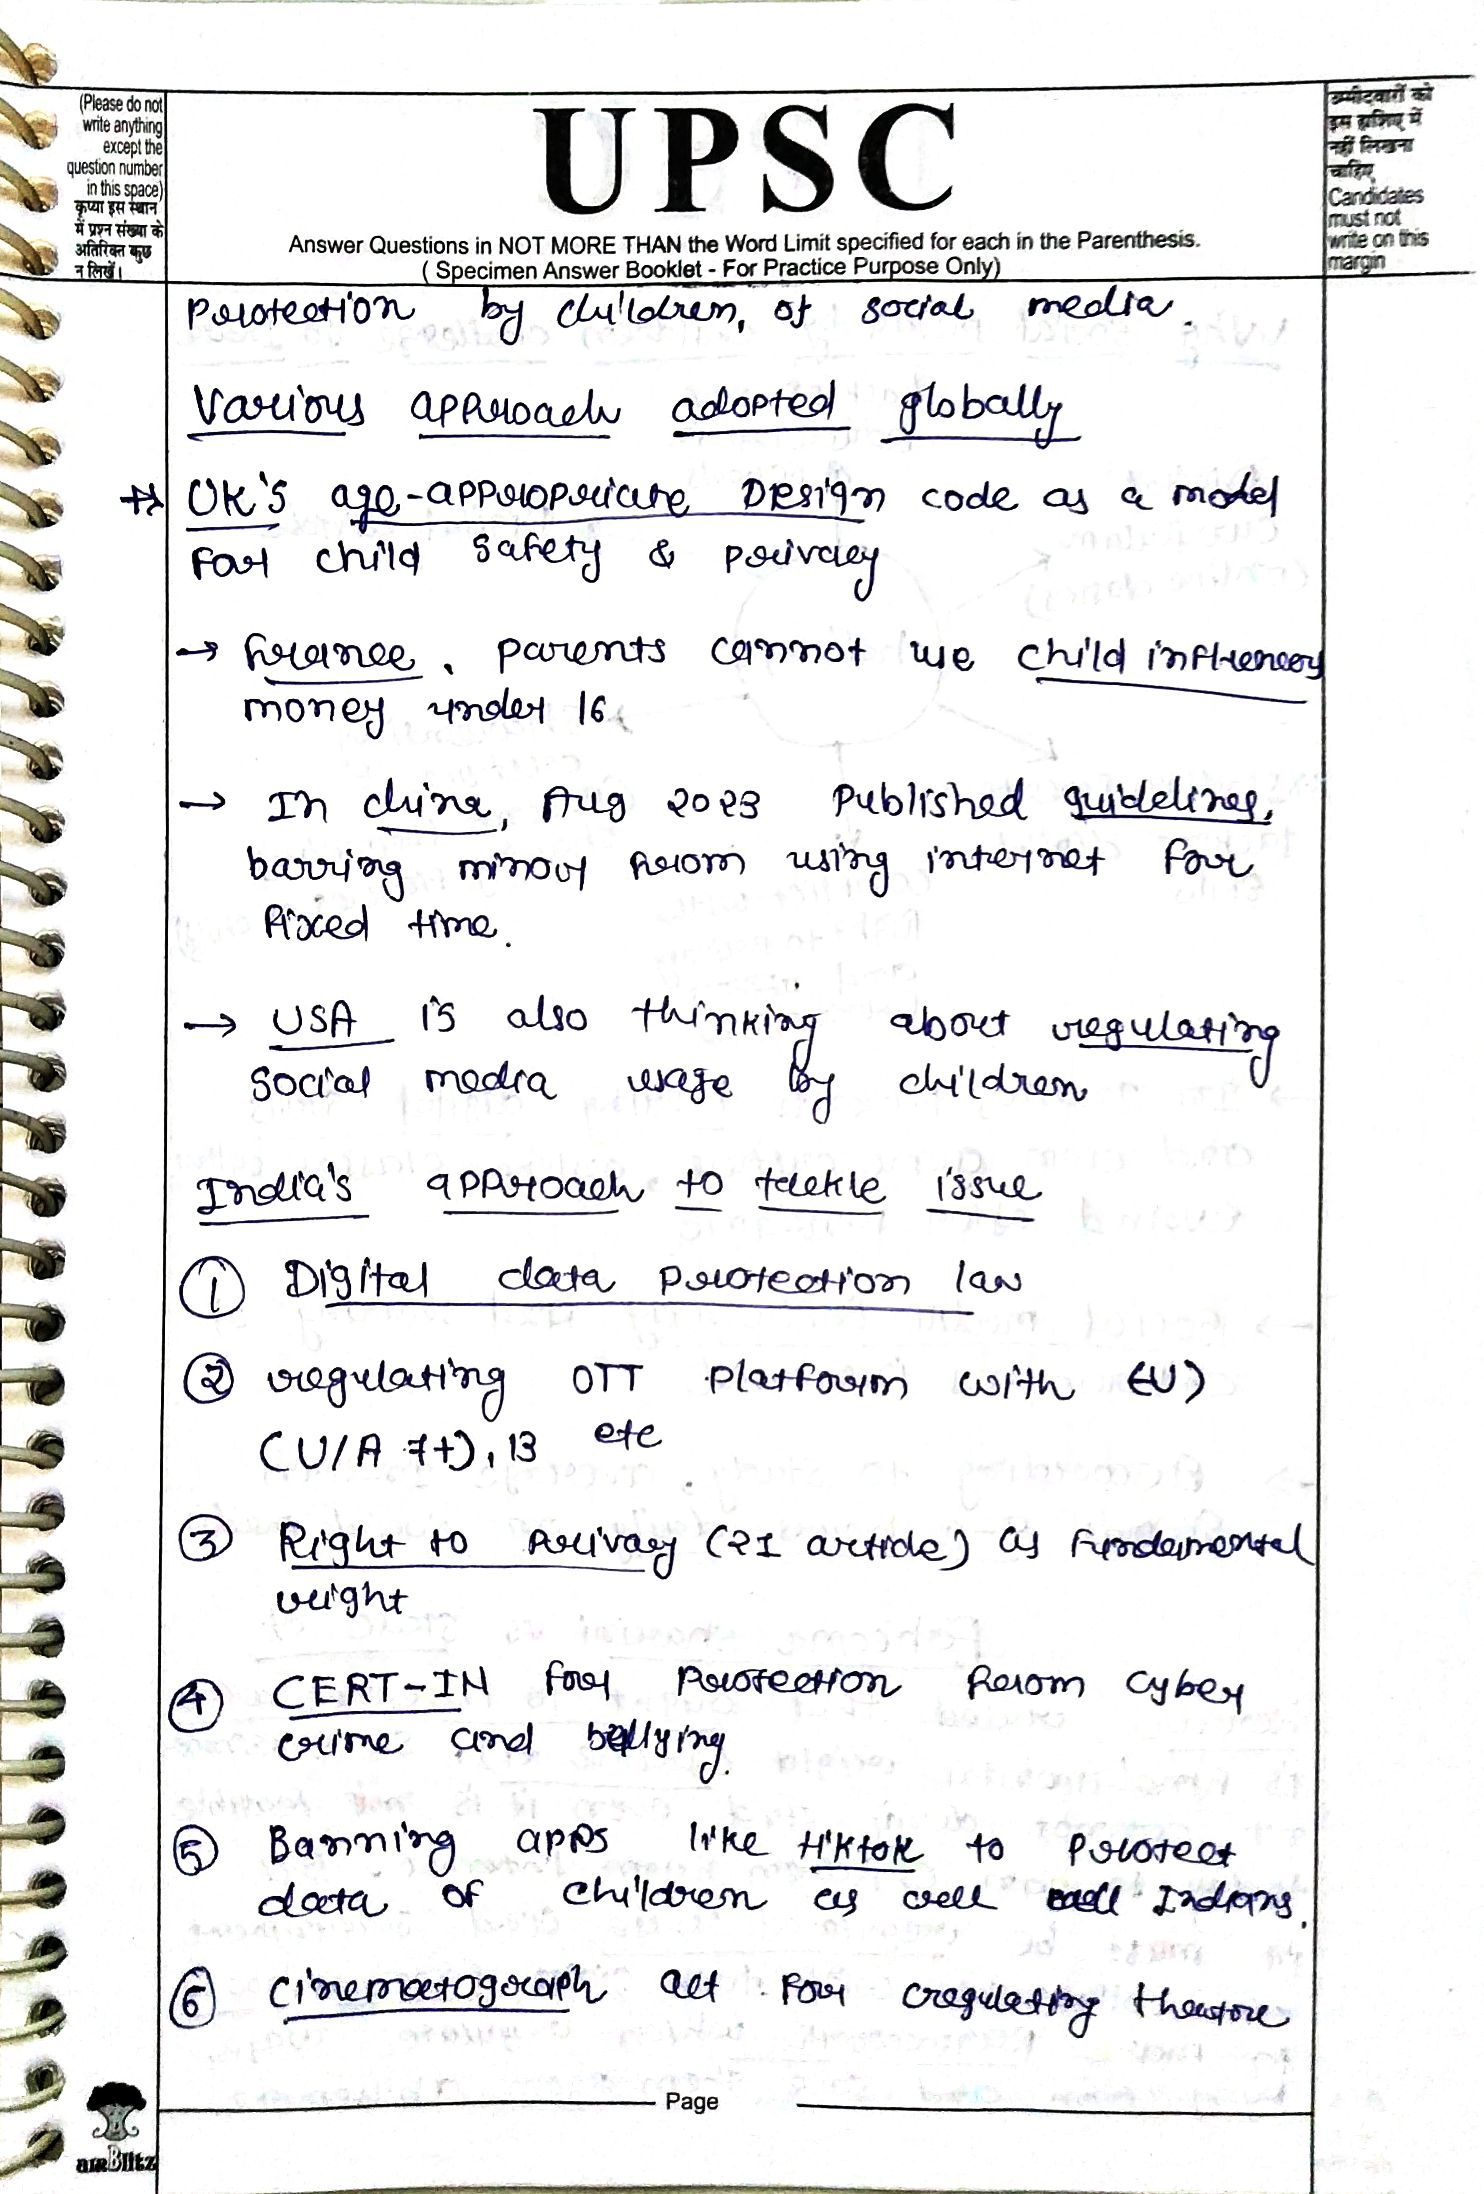 (Please do not
write anything
except the
question number
in this space)
कृप्या इस स्थान
में प्रश्न संख्या के
अतिरिक्त कुछ
न लिखें।
UPSC
Answer Questions in NOT MORE THAN the Word Limit specified for each in the Parenthesis.
( Specimen Answer Booklet - For Practice Purpose Only)
उम्मीदवारों को
इस हाशिए में
नहीं लिखना
चाहिए
Candidates
must not
write on this
margin
protection by children, of social media.
Various approach adopted globally
UK's age-appropriate Design code as a model
for child safety & privacy
→ France, parents cannot use child influencers
money under 16
→ In china, Aug 2023 published guidelines,
barring minor from using internet for
fixed time.
→ USA is also thinking about regulating
social media usage by children
India's approach to tackle issue
① Digital data protection law
② regulating OTT platform with (U)
(U/A 7+), 13 etc
③ Right to privacy (21 article) as fundamental
right
④ CERT-IN for protection from cyber
crime and bullying.
⑤ Banning apps like tiktok to protect
data of children as well Indians.
⑥ Cinematograph act for regulating theatre
Page
aimBlitz